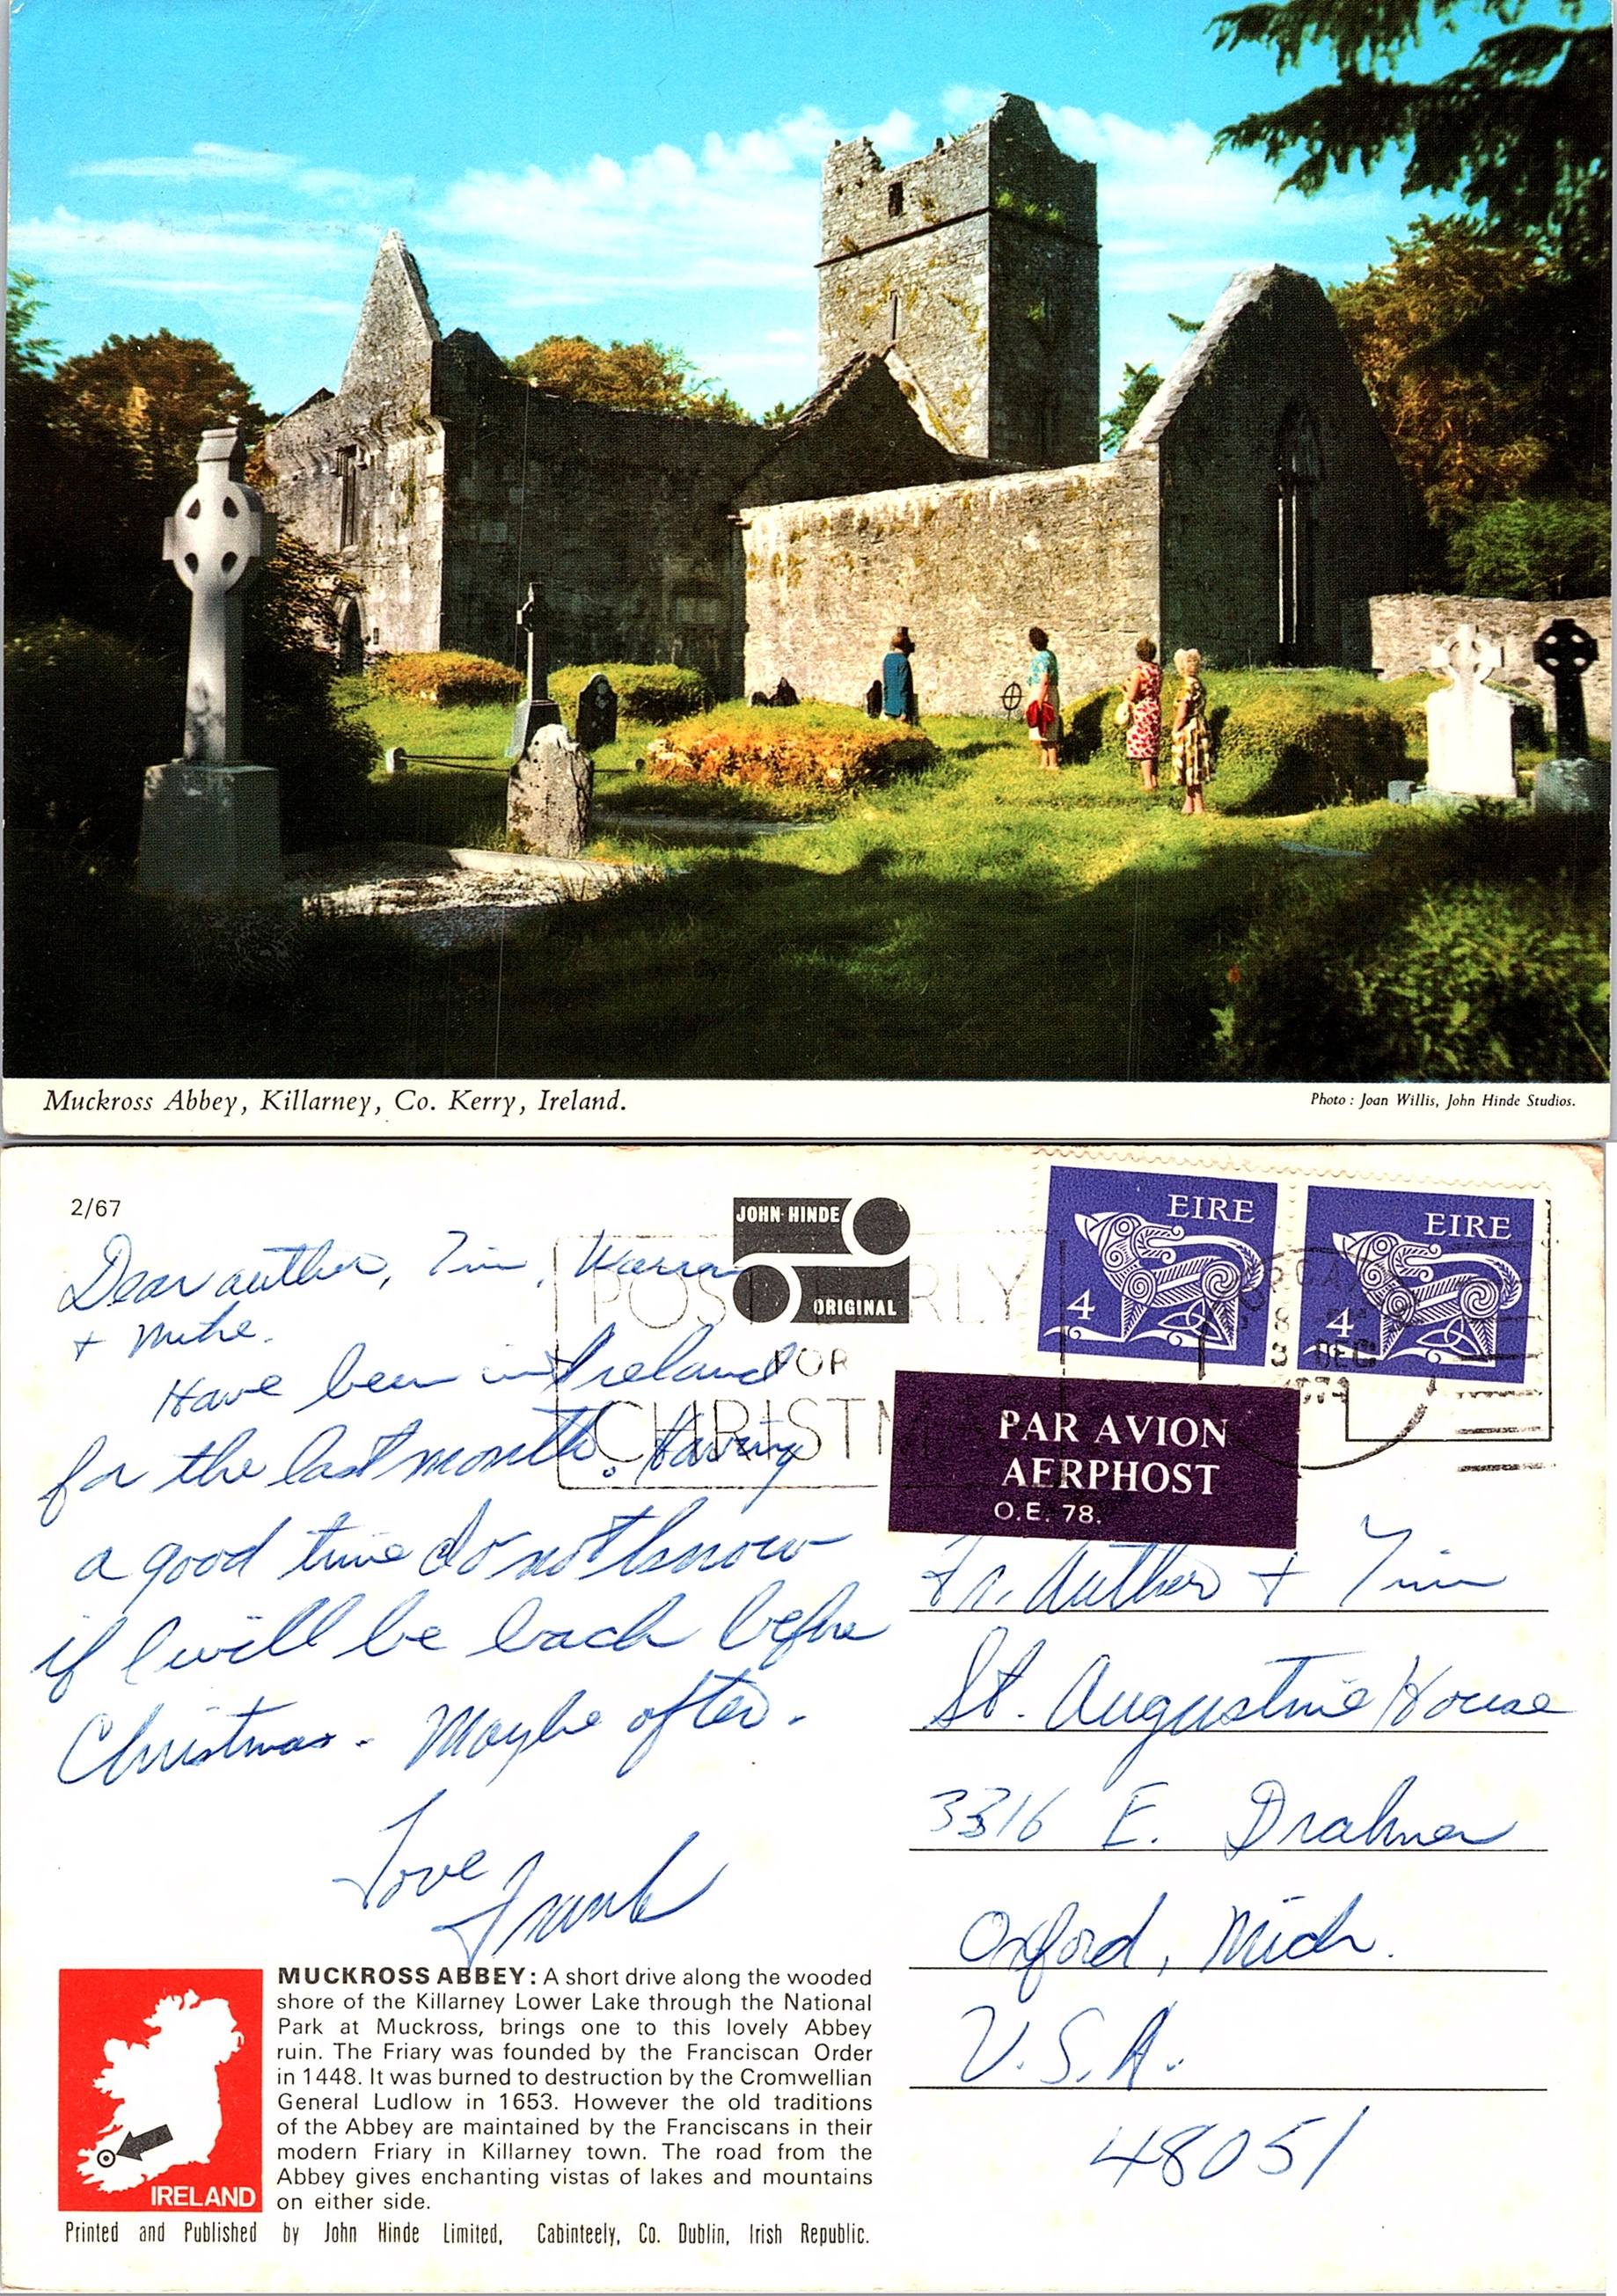 Muckross Abbey, Killarney, Co. Kerry, Ireland.
Photo : Joan Willis, John Hinde Studios.
2/67
JOHN HINDE
ORIGINAL
EIRE
4
EIRE
4
POST EARLY
FOR
CHRISTM
8 DEC
PAR AVION
AERPHOST
O.E. 78.
Dear author, Tim, Warran
+ Mike.
Have been in Ireland
for the last month. Having
a good time do not know
if I will be back before
Christmas. Maybe after.
Love
Frank
Fr. Author + Tim
St. Augustine House
3316 E. Drahner
Oxford, Mich.
U.S.A.
48051
MUCKROSS ABBEY: A short drive along the wooded
shore of the Killarney Lower Lake through the National
Park at Muckross, brings one to this lovely Abbey
ruin. The Friary was founded by the Franciscan Order
in 1448. It was burned to destruction by the Cromwellian
General Ludlow in 1653. However the old traditions
of the Abbey are maintained by the Franciscans in their
modern Friary in Killarney town. The road from the
Abbey gives enchanting vistas of lakes and mountains
on either side.
IRELAND
Printed and Published by John Hinde Limited, Cabinteely, Co. Dublin, Irish Republic.